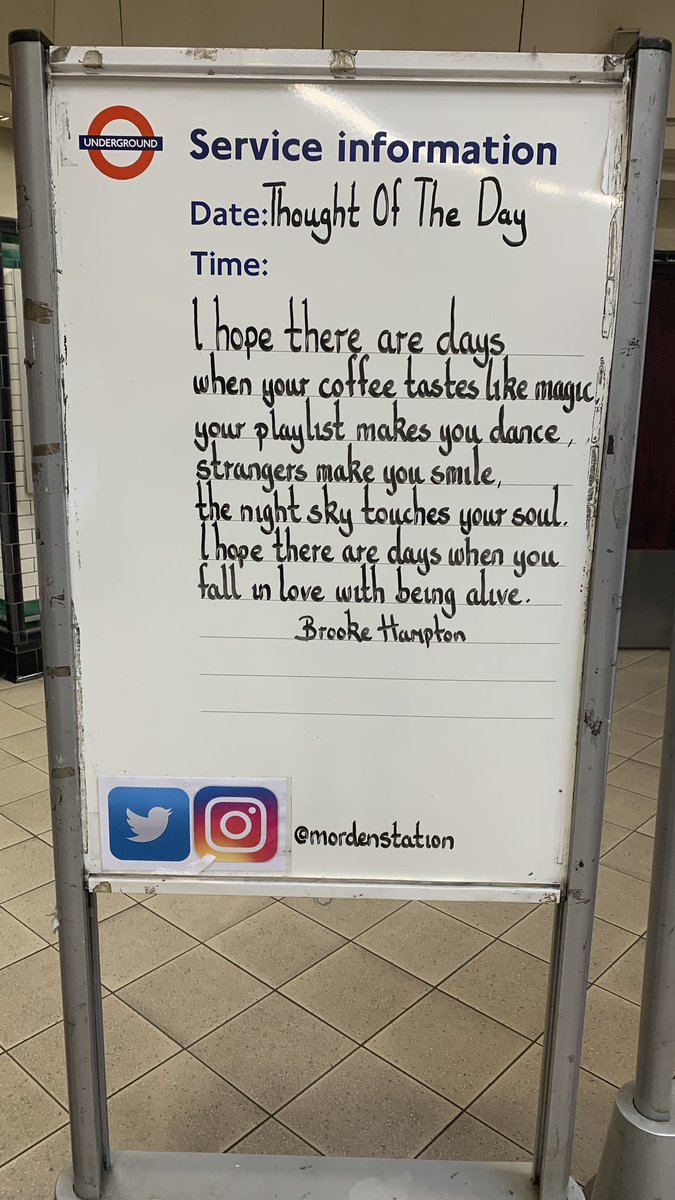 UNDERGROUND
Service information
Date: Thought Of The Day
Time:
I hope there are days
when your coffee tastes like magic,
your playlist makes you dance,
strangers make you smile,
the night sky touches your soul.
I hope there are days when you
fall in love with being alive.
Brooke Hampton
@mordenstation